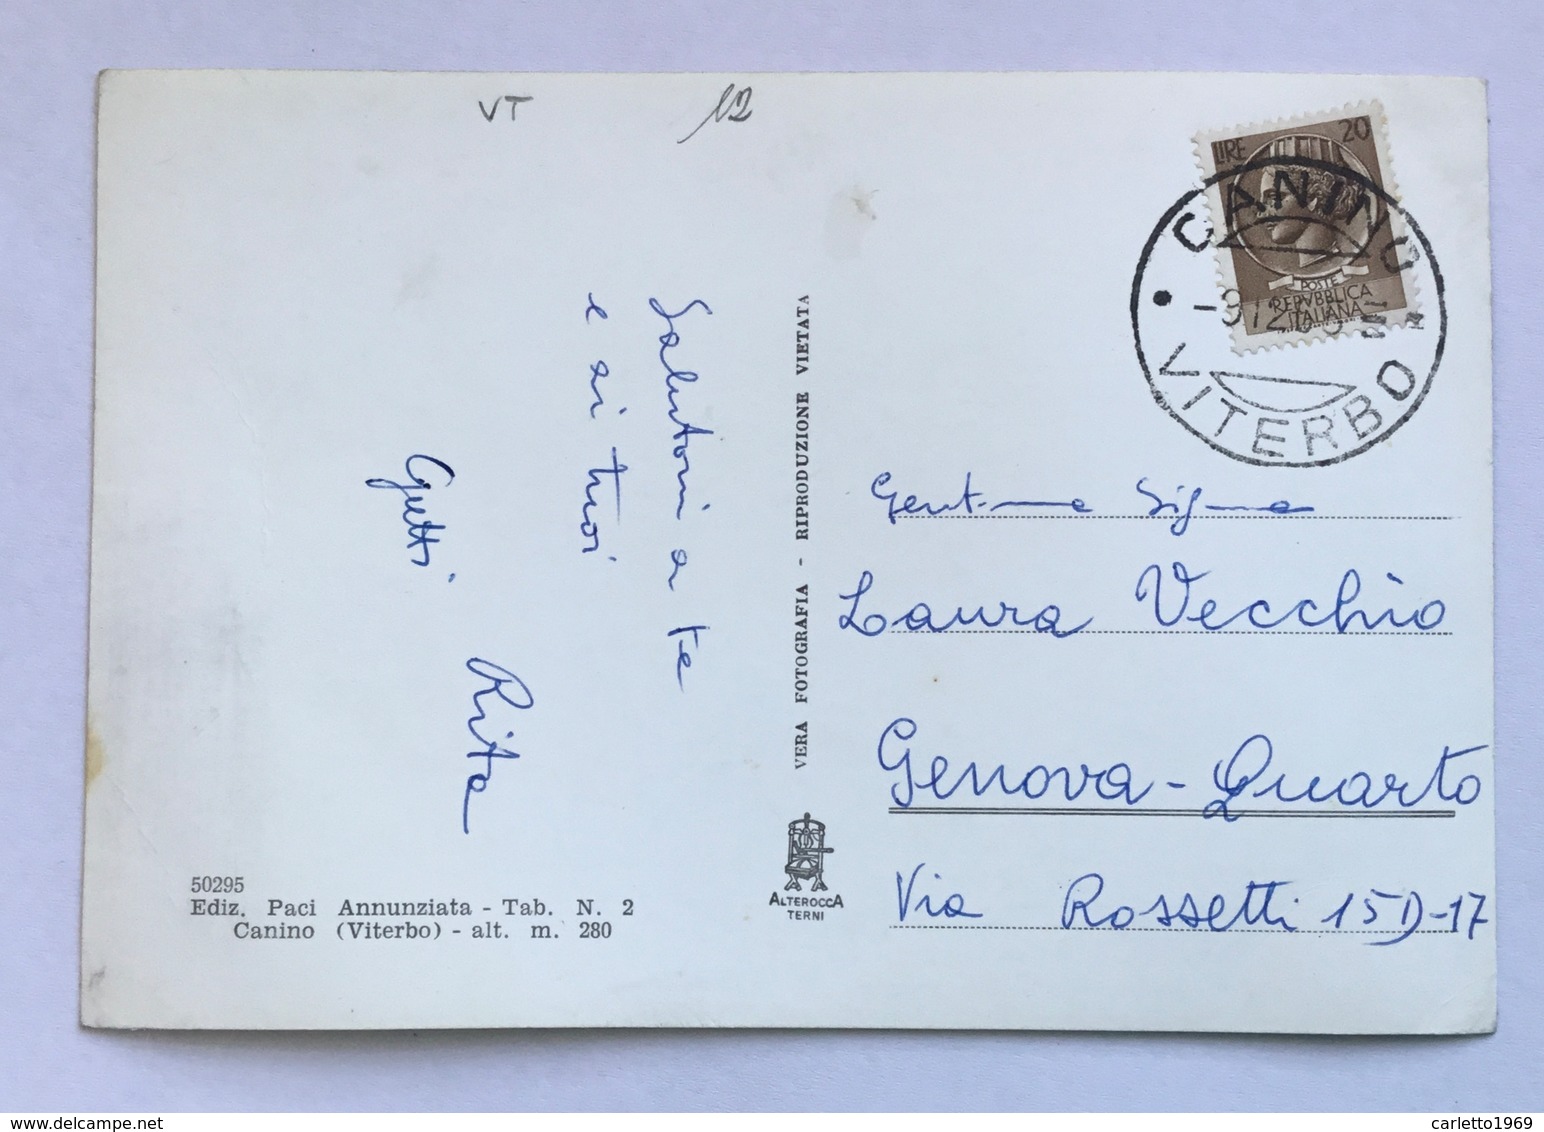 VT
12
LIRE 20
POSTE
REPVBBLICA
ITALIANA
CANINO
VITERBO
Salutoni a te
e ai tuoi
Rita
VERA FOTOGRAFIA - RIPRODUZIONE VIETATA
ALTEROCCA
TERNI
Laura Vecchio
Genova - Quarto
Via Rossetti 15D-17
50295
Ediz. Paci Annunziata - Tab. N. 2
Canino (Viterbo) - alt. m. 280
delcampe.net
carletto1969